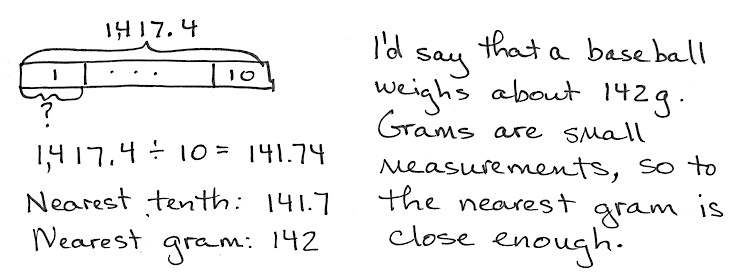 1,417.4
1 . . . 10
?
1,417.4 ÷ 10 = 141.74
Nearest tenth: 141.7
Nearest gram: 142
I'd say that a baseball
weighs about 142g.
Grams are small
measurements, so to
the nearest gram is
close enough.